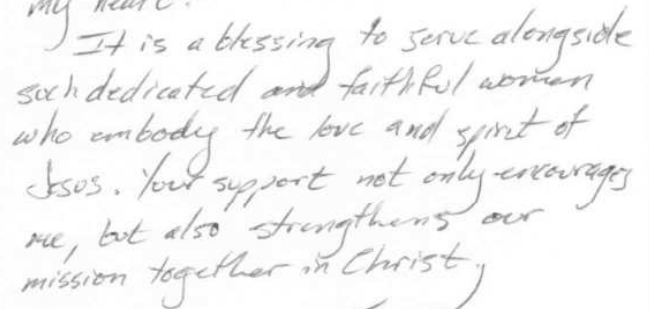 my heart.
It is a blessing to serve alongside
such dedicated and faithful women
who embody the love and spirit of
Jesus. Your support not only encourages
me, but also strengthens our
mission together in Christ,